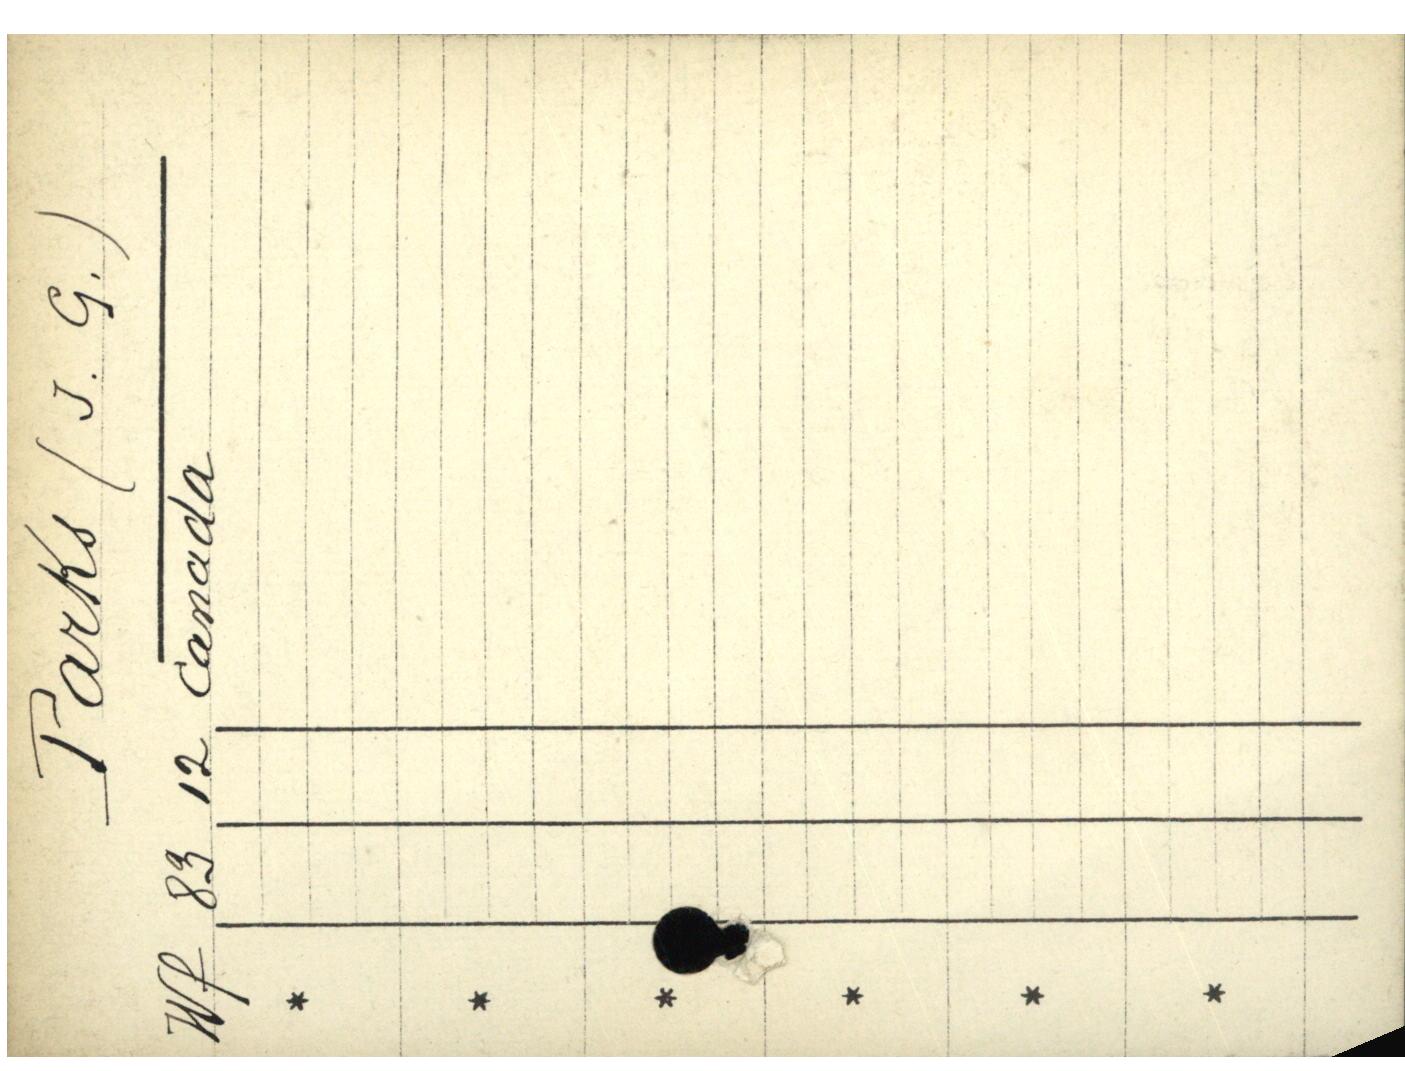 Parks (J. G.)
Wf 83 12 Canada
*
*
*
*
*
*